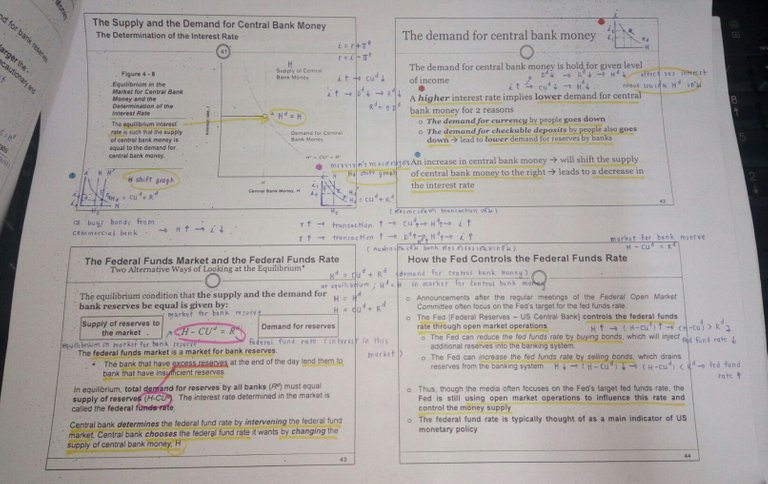 The Supply and the Demand for Central Bank Money
The Determination of the Interest Rate
41
Figure 4 - 8
Equilibrium in the
Market for Central Bank
Money and the
Determination of the
Interest Rate
The equilibrium interest
rate is such that the supply
of central bank money is
equal to the demand for
central bank money.
H
Supply of Central
Bank Money
Interest rate, i
Hᵈ = H
Demand for Central
Bank Money
H
Central Bank Money, H
i = r + πᵉ
r = i - πᵉ
i↑ → CUᵈ↓
i↑ → Dᵈ↓ → Rᵈ↓
Rᵈ = θDᵈ
H shift graph
Hd = CUᵈ + Rᵈ
Hd shift graph
= CUᵈ + Rᵈ
CB buys bonds from
commercial bank → H↑ → i↓
Y↑ → transaction ↑ → CUᵈ↑ → Hᵈ↑ → i↑
Y↑ → transaction ↑ → Dᵈ↑ → Hᵈ↑ → i↑
The demand for central bank money
The demand for central bank money is hold for given level
of income
i↑ Dᵈ↓ → Rᵈ↓ → Hᵈ↓
CUᵈ↓ → Hᵈ↓
A higher interest rate implies lower demand for central
bank money for 2 reasons
The demand for currency by people goes down
The demand for checkable deposits by people also goes
down → lead to lower demand for reserves by banks
An increase in central bank money → will shift the supply
of central bank money to the right → leads to a decrease in
the interest rate
42
The Federal Funds Market and the Federal Funds Rate
Two Alternative Ways of Looking at the Equilibrium*
Hᵈ = CUᵈ + Rᵈ (demand for central bank money)
at equilibrium, Hᵈ = H in market for central bank money
H = Hᵈ
H = CUᵈ + Rᵈ
The equilibrium condition that the supply and the demand for
bank reserves be equal is given by:
market for bank reserve
Supply of reserves to
the market
H - CUᵈ = Rᵈ
Demand for reserves
equilibrium in market for bank reserve
federal fund rate (interest in this
market)
The federal funds market is a market for bank reserves.
The bank that have excess reserves at the end of the day lend them to
bank that have insufficient reserves.
In equilibrium, total demand for reserves by all banks (Rᵈ) must equal
supply of reserves (H-CUᵈ). The interest rate determined in the market is
called the federal funds rate.
Central bank determines the federal fund rate by intervening the federal fund
market. Central bank chooses the federal fund rate it wants by changing the
supply of central bank money, H
43
market for bank reserve
H - CUᵈ = Rᵈ
How the Fed Controls the Federal Funds Rate
Announcements after the regular meetings of the Federal Open Market
Committee often focus on the Fed's target for the fed funds rate.
The Fed [Federal Reserves – US Central Bank] controls the federal funds
rate through open market operations.
H↑ → (H-CUᵈ)↑ → (H-CUᵈ) > Rᵈ
fed fund rate ↓
The Fed can reduce the fed funds rate by buying bonds, which will inject
additional reserves into the banking system.
The Fed can increase the fed funds rate by selling bonds, which drains
reserves from the banking system.
H↓ → (H-CUᵈ)↓ → (H-CUᵈ) < Rᵈ → fed fund
rate ↑
Thus, though the media often focuses on the Fed's target fed funds rate, the
Fed is still using open market operations to influence this rate and
control the money supply
The federal fund rate is typically thought of as a main indicator of US
monetary policy
44